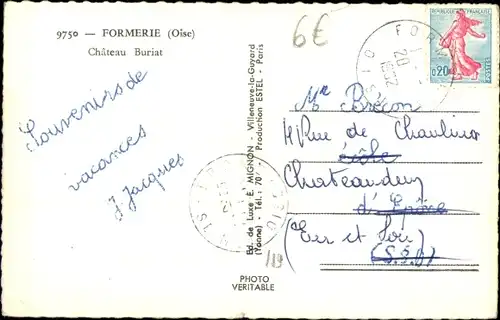 9750 — FORMERIE (Oise)
Château Buriat
6€
Souvenirs de
vacances
J. Jacques
Ed. de Luxe E. MIGNON - Villeneuve-la-Guyard
(Yonne) - Tél.: 70 - Production ESTEL - Paris
PHOTO
VERITABLE
REPUBLIQUE FRANÇAISE
0,20
POSTES
Mr Brécon
4 Rue de
Chateaudun
(Eur et Loir)